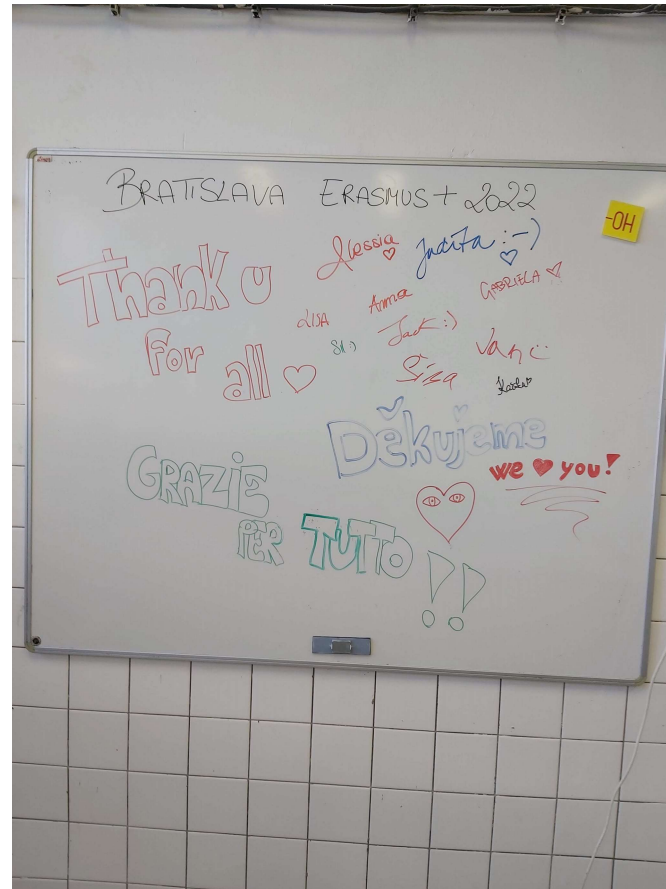 BRATISLAVA ERASMUS+ 2022
-OH
Thank u
for all ♡
Alessia ♡
Judita :-) ♡
GABRIELA ♡
Anma
LISA
Jack :)
Jan :)
Siza
Děkujeme
we ♥ you!
GRAZIE
PER TUTTO !!